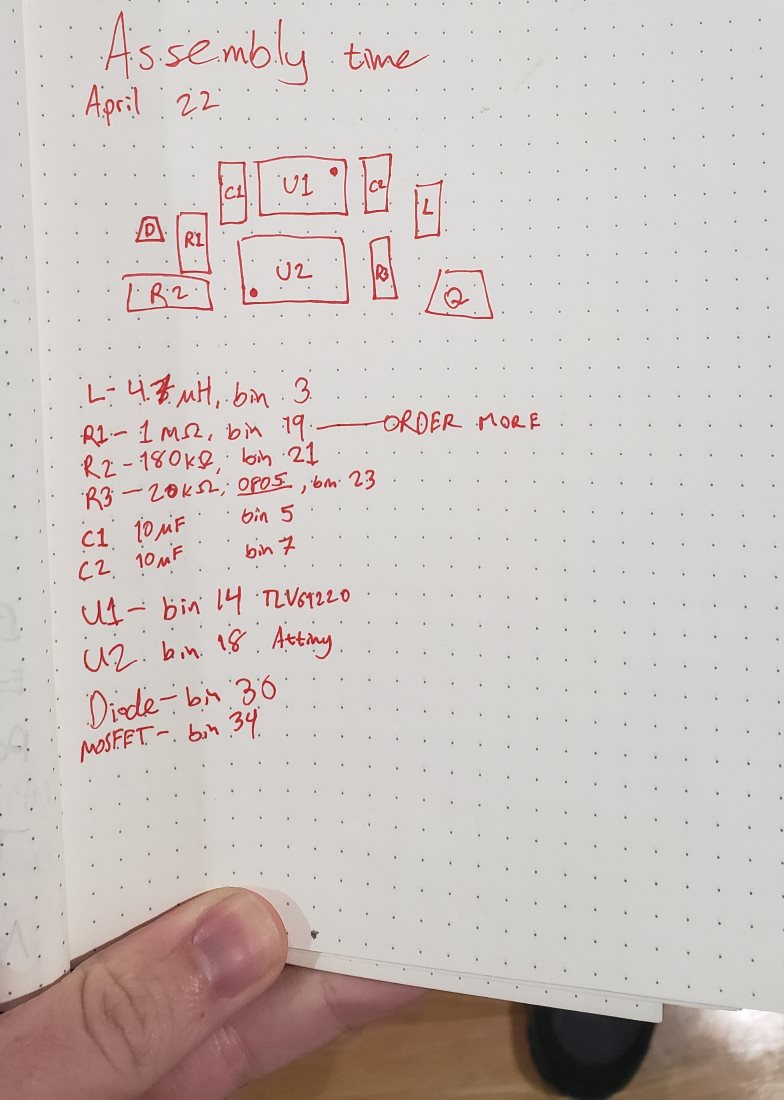 Assembly time
April 22
C1 U1 C2
L
D R1
U2 R3
R2 Q
L- 4.7 μH, bin 3
R1- 1 MΩ, bin 19 — ORDER MORE
R2-180kΩ, bin 21
R3-20kΩ, 0805, bin 23
C1 10μF bin 5
C2 10μF bin 7
U1- bin 14
U2 bin 18 Attiny
Diode- bin 30
MOSFET- bin 34